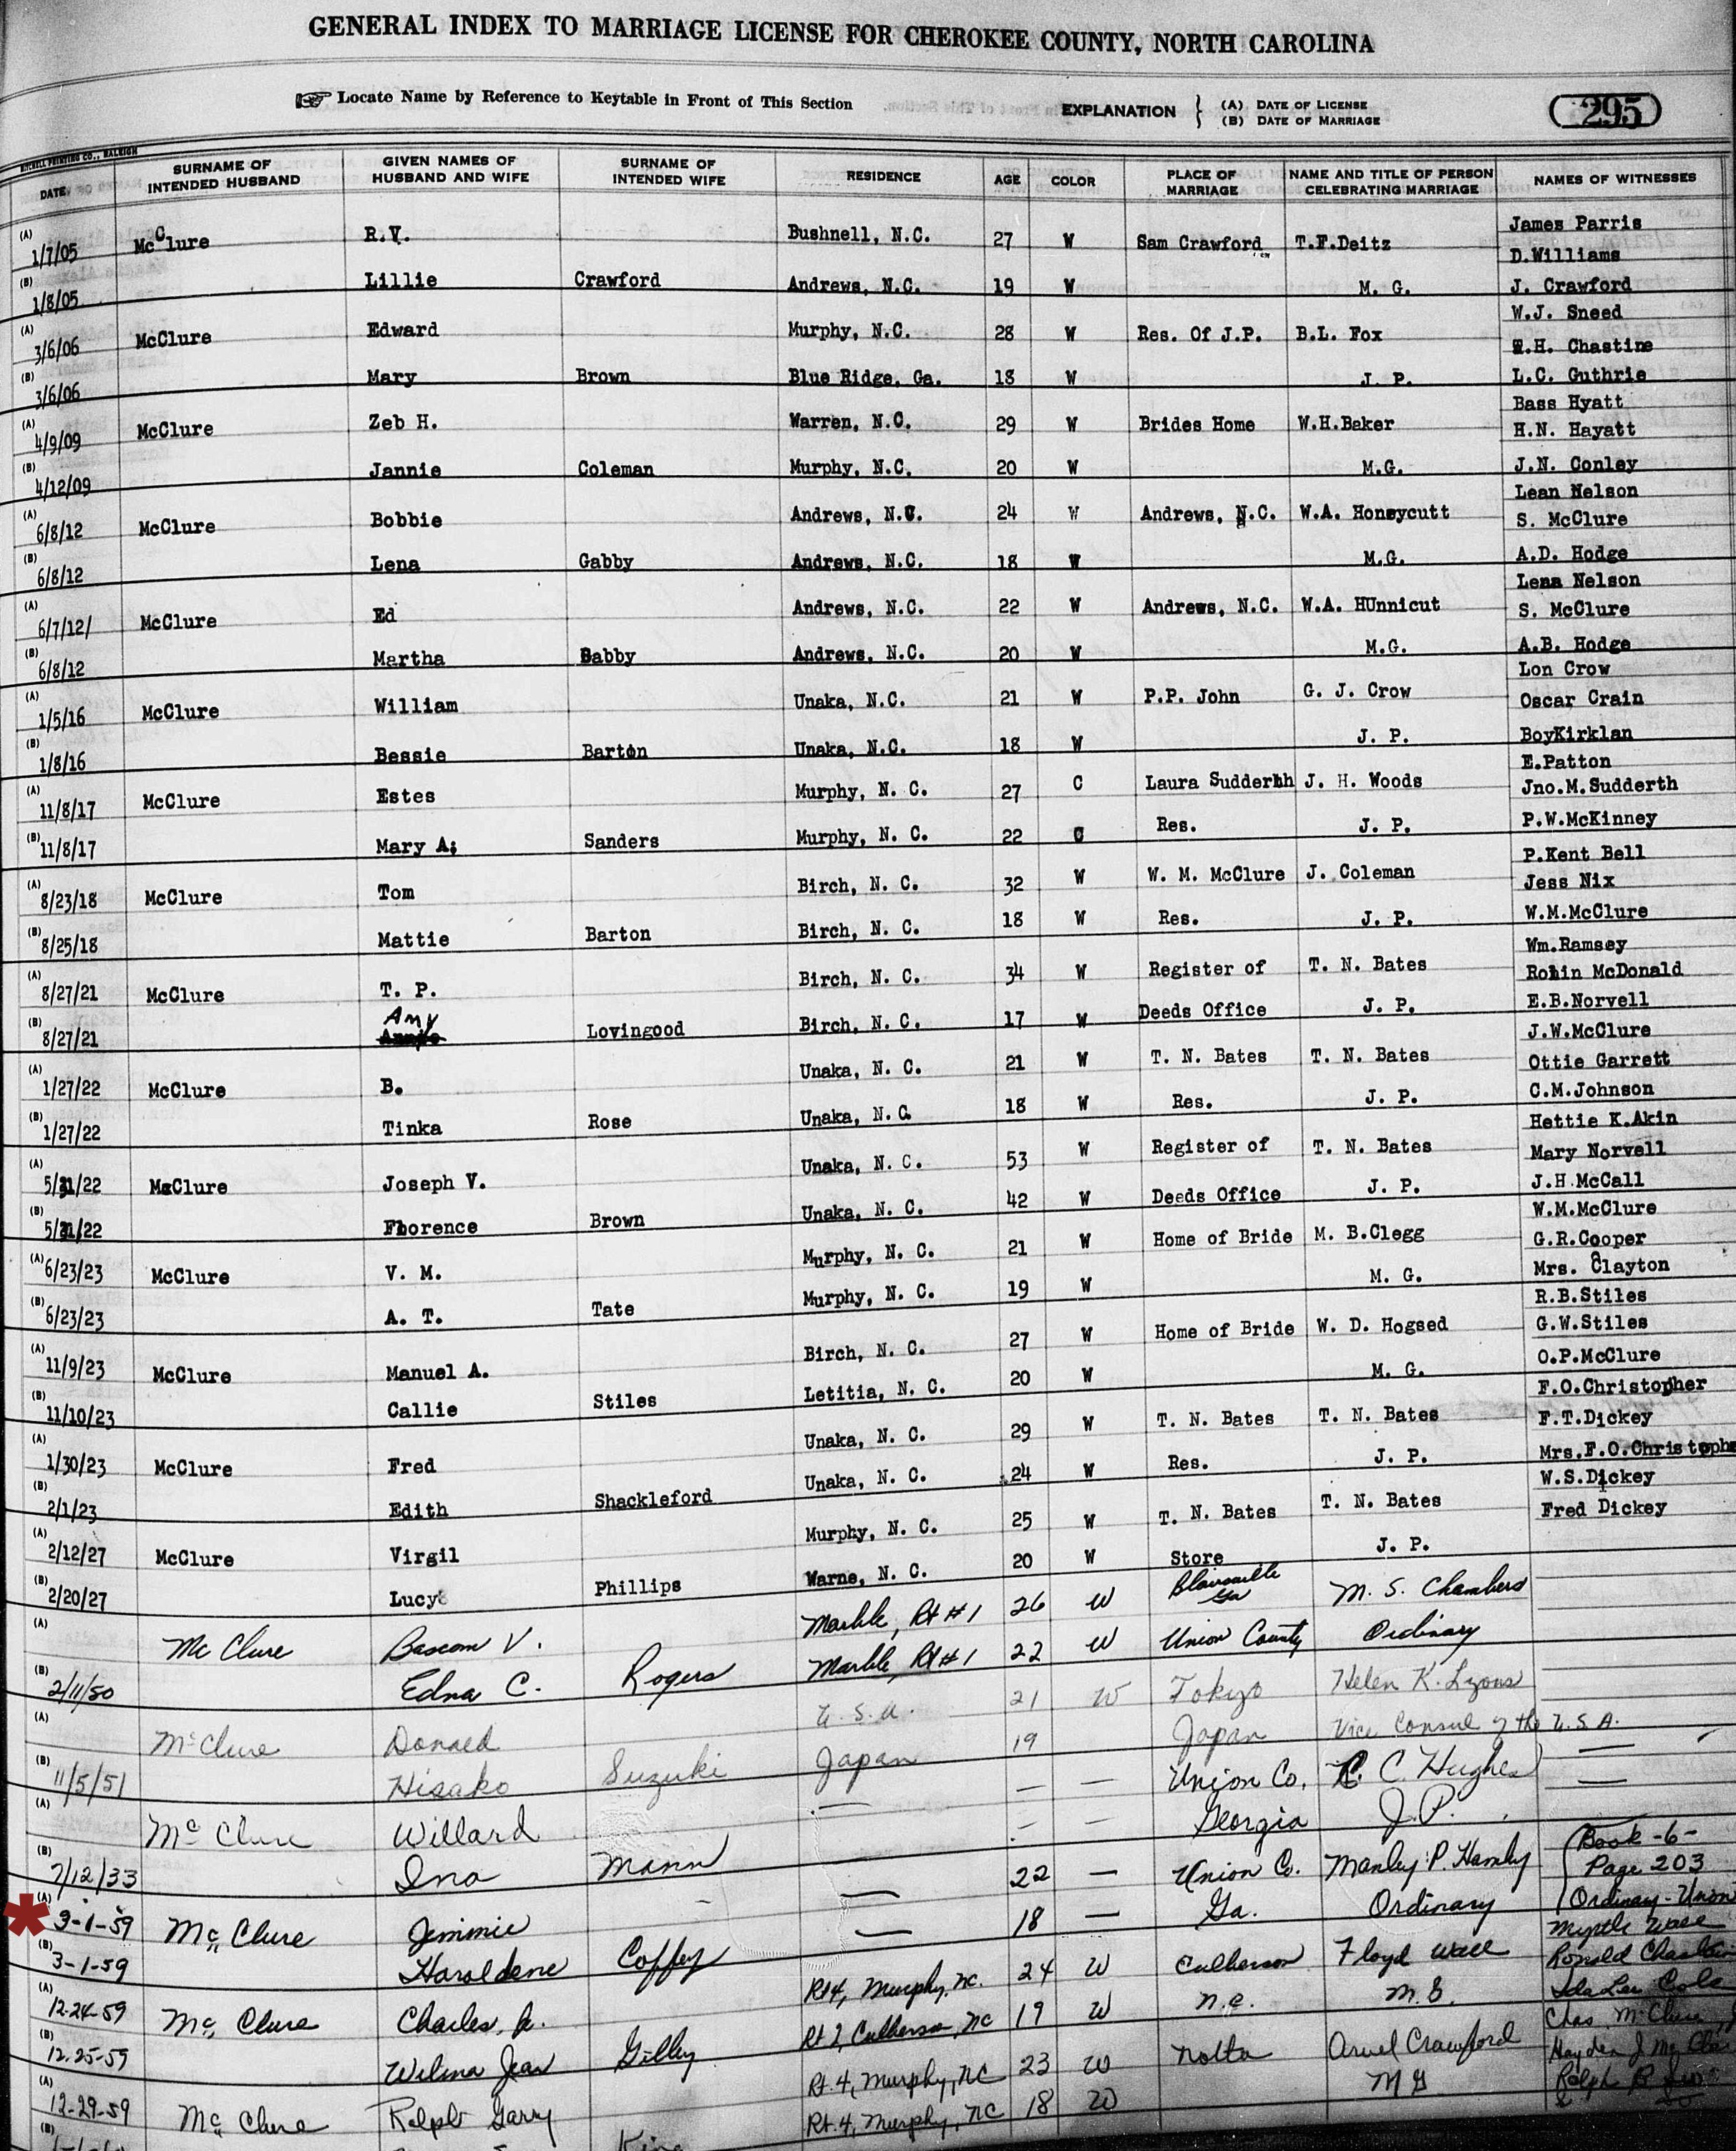 GENERAL INDEX TO MARRIAGE LICENSE FOR CHEROKEE COUNTY, NORTH CAROLINA
Locate Name by Reference to Keytable in Front of This Section EXPLANATION } (A) DATE OF LICENSE (B) DATE OF MARRIAGE 295
MITCHELL PRINTING CO., RALEIGH
DATE SURNAME OF INTENDED HUSBAND GIVEN NAMES OF HUSBAND AND WIFE SURNAME OF INTENDED WIFE RESIDENCE AGE COLOR PLACE OF MARRIAGE NAME AND TITLE OF PERSON CELEBRATING MARRIAGE NAMES OF WITNESSES
James Parris
(A) 1/7/05 McClure R.V. Bushnell, N.C. 27 W Sam Crawford T.F.Deitz D.Williams
(B) 1/8/05 Lillie Crawford Andrews, N.C. 19 W M. G. J. Crawford
W.J. Sneed
(A) 3/6/06 McClure Edward Murphy, N.C. 28 W Res. Of J.P. B.L. Fox H. Chastine
(B) 3/6/06 Mary Brown Blue Ridge, Ga. 18 W J. P. L.C. Guthrie
Bass Hyatt
(A) 4/9/09 McClure Zeb H. Warren, N.C. 29 W Brides Home W.H.Baker H.N. Hayatt
(B) 4/12/09 Jannie Coleman Murphy, N.C. 20 W M.G. J.N. Conley
Lean Nelson
(A) 6/8/12 McClure Bobbie Andrews, N.C. 24 W Andrews, N.C. W.A. Honeycutt S. McClure
(B) 6/8/12 Lena Gabby Andrews, N.C. 18 W M.G. A.D. Hodge
Lena Nelson
(A) 6/7/12/ McClure Ed Andrews, N.C. 22 W Andrews, N.C. W.A. HUnnicut S. McClure
(B) 6/8/12 Martha Gabby Andrews, N.C. 20 W M.G. A.B. Hodge
Lon Crow
(A) 1/5/16 McClure William Unaka, N.C. 21 W P.P. John G. J. Crow Oscar Crain
(B) 1/8/16 Bessie Barton Unaka, N.C. 18 W J. P. BoyKirklan
E.Patton
(A) 11/8/17 McClure Estes Murphy, N. C. 27 C Laura Sudderth J. H. Woods Jno.M.Sudderth
(B) 11/8/17 Mary A; Sanders Murphy, N. C. 22 C Res. J. P. P.W.McKinney
P.Kent Bell
(A) 8/23/18 McClure Tom Birch, N. C. 32 W W. M. McClure J. Coleman Jess Nix
(B) 8/25/18 Mattie Barton Birch, N. C. 18 W Res. J. P. W.M.McClure
Wm.Ramsey
(A) 8/27/21 McClure T. P. Birch, N. C. 34 W Register of T. N. Bates Robin McDonald
(B) 8/27/21 Any Lovingood Birch, N. C. 17 W Deeds Office J. P. E.B.Norvell
J.W.McClure
(A) 1/27/22 McClure B. Unaka, N. C. 21 W T. N. Bates T. N. Bates Ottie Garrett
(B) 1/27/22 Tinka Rose Unaka, N.C. 18 W Res. J. P. C.M.Johnson
Hettie K.Akin
(A) 5/31/22 McClure Joseph V. Unaka, N. C. 53 W Register of T. N. Bates Mary Norvell
(B) 5/31/22 Florence Brown Unaka, N. C. 42 W Deeds Office J. P. J.H.McCall
W.M.McClure
(A) 6/23/23 McClure V. M. Murphy, N. C. 21 W Home of Bride M. B.Clegg G.R.Cooper
(B) 6/23/23 A. T. Tate Murphy, N. C. 19 W M. G. Mrs. Clayton
R.B.Stiles
(A) 11/9/23 McClure Manuel A. Birch, N. C. 27 W Home of Bride W. D. Hogsed G.W.Stiles
(B) 11/10/23 Callie Stiles Letitia, N. C. 20 W M. G. O.P.McClure
F.O.Christopher
(A) 1/30/23 McClure Fred Unaka, N. C. 29 W T. N. Bates T. N. Bates F.T.Dickey
(B) 2/1/23 Edith Shackleford Unaka, N. C. 24 W Res. J. P. Mrs.F.O.Christophe
W.S.Dickey
(A) 2/12/27 McClure Virgil Murphy, N. C. 25 W T. N. Bates T. N. Bates Fred Dickey
(B) 2/20/27 Lucy Phillips Warne, N. C. 20 W Store J. P.
(A) McClure Bascom V. Marble, Rt #1 26 W Blairsville Ga M. S. Chambers
(B) 2/11/50 Edna C. Rogers Marble, Rt #1 22 W Union County Ordinary
(A) McClure Donald U.S.A. 21 W Tokyo Helen K. Lyons
(B) 11/5/51 Hisako Suzuki Japan 19 Japan Vice Consul of the U.S.A.
(A) McClure Willard — — — Union Co. C. Hughes —
(B) 7/12/33 Ina Mann — — Georgia J.P. —
(A) 3-1-59 McClure Jimmie — 22 — Union Co. Manley P. Haralson Book -6- Page 203
(B) 3-1-59 Haroldene Coffey — 18 — Ga. Ordinary Ordinary-Union
Myrtle Wall
(A) 12-24-59 McClure Charles Jr. Rt 4, Murphy, N.C. 24 W Culberson Floyd Wall Ronald
(B) 12-25-59 Wilma Jean Gilley Rt 2, Culberson, NC 19 W N.C. M.G. Ida Lee Cole
Chas. McClure
(A) 12-29-59 McClure Ralph Garry Rt. 4, Murphy, NC 23 W Notla Arvel Crawford Hayden J. Mc
(B) King Rt. 4, Murphy, NC 18 W M G Ralph B